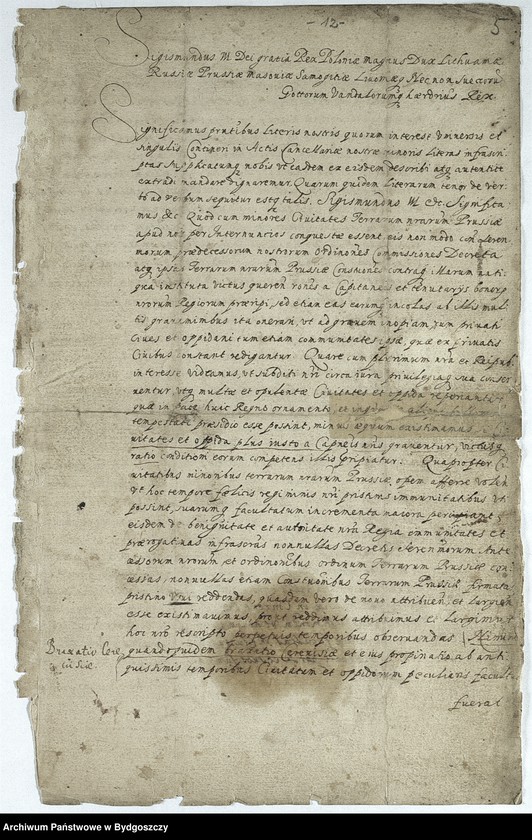 - 12 -
5
Sigismundus III. Dei gratia Rex Poloniæ magnus Dux Lithuaniæ
Russiæ Prussiæ masoviæ Samogitiæ Livoniæq Nec non Suecorū
Gottorum Vandalorumq hæredrius Rex
Significamus pntibus literis nostris quorum interest vniuersis et
singulis Contineri in Actis Cancellariæ nostræ minoris literas infrascri-
ptas supplicatumq nobis vt easdem ex eisdem describi atq autentice
extradi mandare dignaremur. Quarum quidem Literarum tenor de ver-
bo ad verbum sequitur estq talis. Sigismundus III. etc. Significa-
mus etc Quod cum minores Ciuitates Terrarum nrarum Prussiæ
apud nos per Internuncios conquestæ essent, eis non modo contra seren
morum prædecessorum nostrorum Ordinones Commissiones Decreta
acq ipsas Terrarum nrarum Prussiæ Constiones contraq Illarum anti-
qua instituta victus querendi rones a Capitaneis et tenutarys bonorū
nrorum Regiorum præripi, sed etiam eas earumq incolas ab illis mul-
tis grauaminibus ita onerari, vt ad grauem inopiam, tum priuati
Ciues et oppidani tum etiam communitates ipsæ, quæ ex priuatis
Ciuibus constant redigantur. Quare cum plurimum nra et Reipub.
interesse videamus, vt subditi nri circa iura priuilegiaq sua conser-
uentur, vtq multæ et opulentæ Ciuitates et oppida reperiantur
quæ in pace huic Regno ornamento, et in
tempestate præsidio esse possint, minus æquum existimamus
uitates et oppida plus iusto a Capneis nris grauentur, victusq
ratio conditioni eorum competens illis præripiatur. Quapropter Ci-
uitatibus minoribus terrarum nrarum Prussiæ, opem afferre volen
vt hoc tempore felicis regiminis nri pristinis immunitatibus vti
possint, suarumq facultatum incrementa maiora percipiant
eisdem de benignitate et autoritate nra Regia immunitates et
prærogatiuas infrascras nonnullas Decretis Seren morum Ante-
cessorum nrorum et ordinonibus ordinum Terrarum Prussiæ con-
cessas, nonnullas etiam Constionibus Terrarum Prussiæ firmatas
pristino vsui reddendas, quasdam vero de nouo attribuen et largien
esse existimauimus, prout reddimus attribuimus et Largimur
hoc nro rescripto perpetuis temporibus obseruandas. Primum
quandoquidem braxatio cereuisiæ et eius propinatio ab anti-
quissimis temporibus Ciuitatum et oppidorum peculiaris facult
fuerat
Braxatio Cere
uisiæ.
Archiwum Państwowe w Bydgoszczy